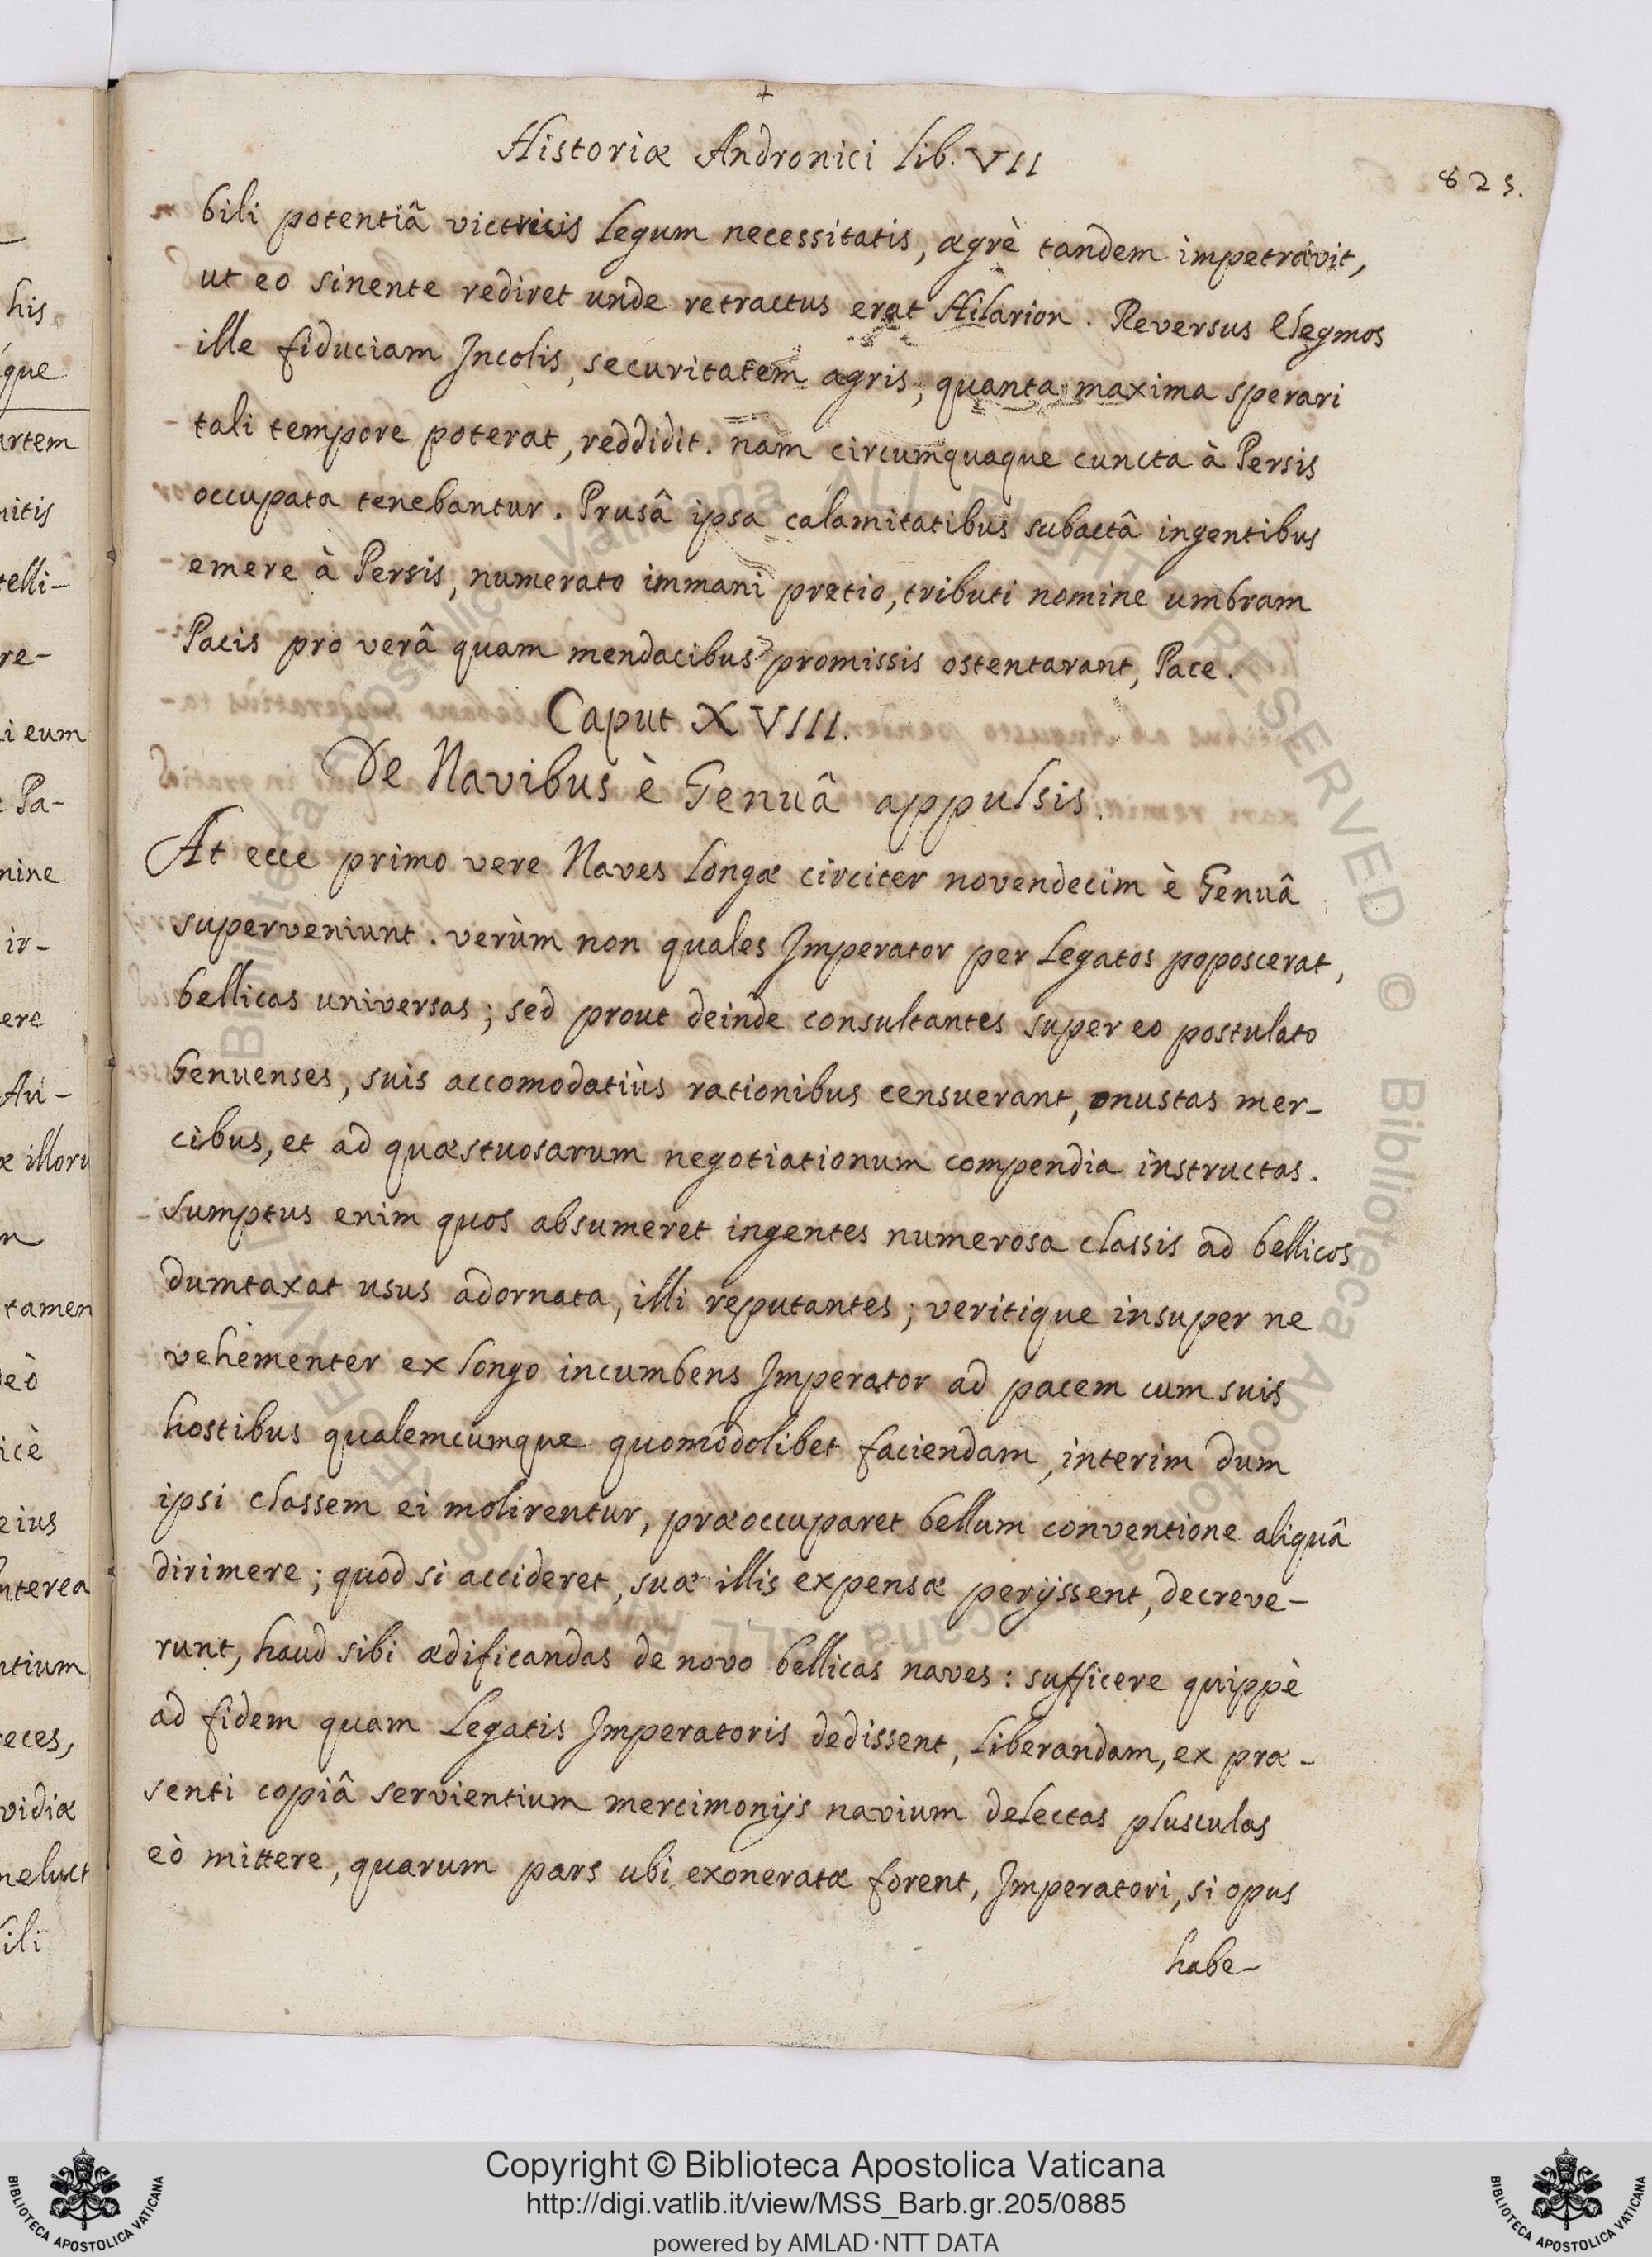 +
Historiæ Andronici lib. VII
823.
bili potentiâ victricis Legum necessitatis, ægrè tandem impetravit,
ut eo sinente rediret unde retractus erat Hilarion. Reversus Elegmos
ille fiduciam Incolis, securitatem agris, quanta maxima sperari
tali tempore poterat, reddidit. nam circumquaque cuncta à Persis
occupata tenebantur. Prusâ ipsa calamitatibus subactâ ingentibus
emere à Persis, numerato immani pretio, tributi nomine umbram
Pacis pro verâ quam mendacibus promissis ostentarant, Pace.
Caput XVIII.
De Navibus è Genuâ appulsis.
At ecce primo vere Naves Longæ circiter novendecim è Genuâ
superveniunt. verùm non quales Imperator per Legatos poposcerat,
bellicas universas; sed prout deinde consultantes super eo postulato
Genuenses, suis accomodatiùs rationibus censuerant, onustas mer-
cibus, et ad quæstuosarum negotiationum compendia instructas.
Sumptus enim quos absumeret ingentes numerosa classis ad bellicos
dumtaxat usus adornata, illi reputantes; veritique insuper ne
vehementer ex longo incumbens Imperator ad pacem cum suis
hostibus qualemcumque quomodolibet faciendam, interim dum
ipsi classem ei molirentur, præoccuparet bellum conventione aliquâ
dirimere; quod si accideret, suæ illis expensæ perijssent, decreve-
runt, haud sibi ædificandas de novo bellicas naves: sufficere quippè
ad fidem quam Legatis Imperatoris dedissent, Liberandam, ex præ-
senti copiâ servientium mercimonijs navium delectas plusculas
eò mittere, quarum pars ubi exoneratæ forent, Imperatori, si opus
habe-
his
que
artem
nitis
telli-
re-
i eum
Pa-
mine
ir-
ere
Au-
æ illoru
tamen
eò
icè
eius
nterea
ntium
reces,
vidiæ
neluct
ili
Copyright © Biblioteca Apostolica Vaticana
http://digi.vatlib.it/view/MSS_Barb.gr.205/0885
powered by AMLAD·NTT DATA
BIBLIOTECA APOSTOLICA VATICANA
BIBLIOTECA APOSTOLICA VATICANA